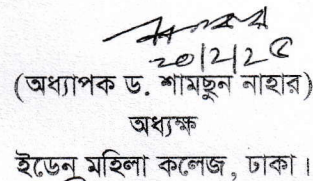 ২০/২/২৫
(অধ্যাপক ড. শামছুন নাহার)
অধ্যক্ষ
ইডেন মহিলা কলেজ, ঢাকা।